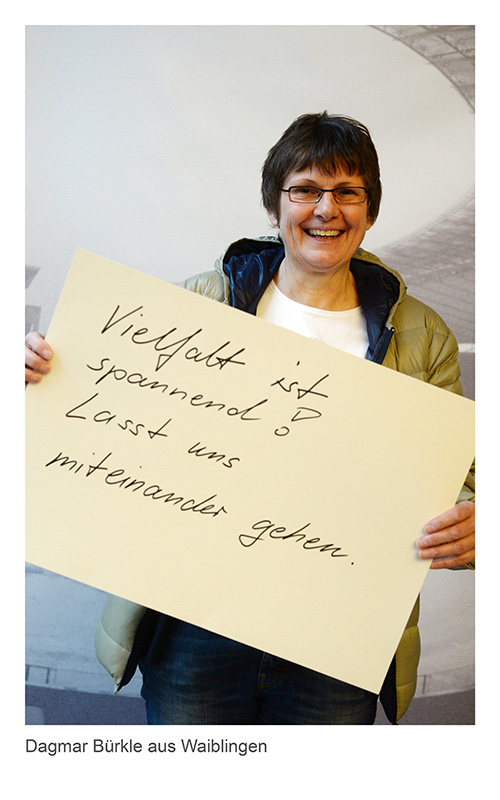 Vielfalt ist
spannend!
Lasst uns
miteinander gehen.
Dagmar Bürkle aus Waiblingen